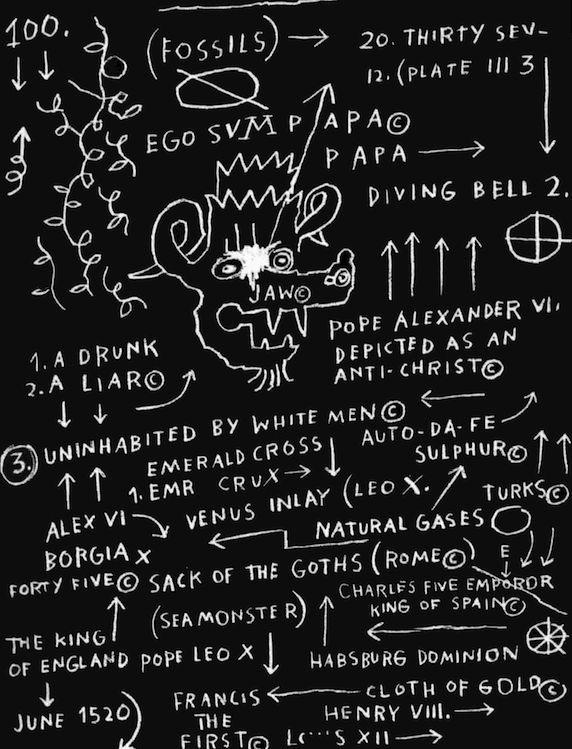 100.
(FOSSILS)
20. THIRTY SEV-
12. (PLATE III 3
EGO SVM PAPA©
PAPA
DIVING BELL 2.
JAW©
POPE ALEXANDER VI.
DEPICTED AS AN
ANTI-CHRIST©
1. A DRUNK
2. A LIAR©
3. UNINHABITED BY WHITE MEN©
AUTO-DA-FE
SULPHUR©
EMERALD CROSS
1. EMR CRUX
VENUS INLAY (LEO X.
TURKS©
ALEX VI
BORGIA X
NATURAL GASES
E
FORTY FIVE©
SACK OF THE GOTHS (ROME©)
CHARLES FIVE EMPOROR
KING OF SPAIN©
(SEA MONSTER)
THE KING
OF ENGLAND POPE LEO X
HABSBURG DOMINION
CLOTH OF GOLD©
JUNE 1520
FRANCIS
THE
FIRST©
HENRY VIII.
XII